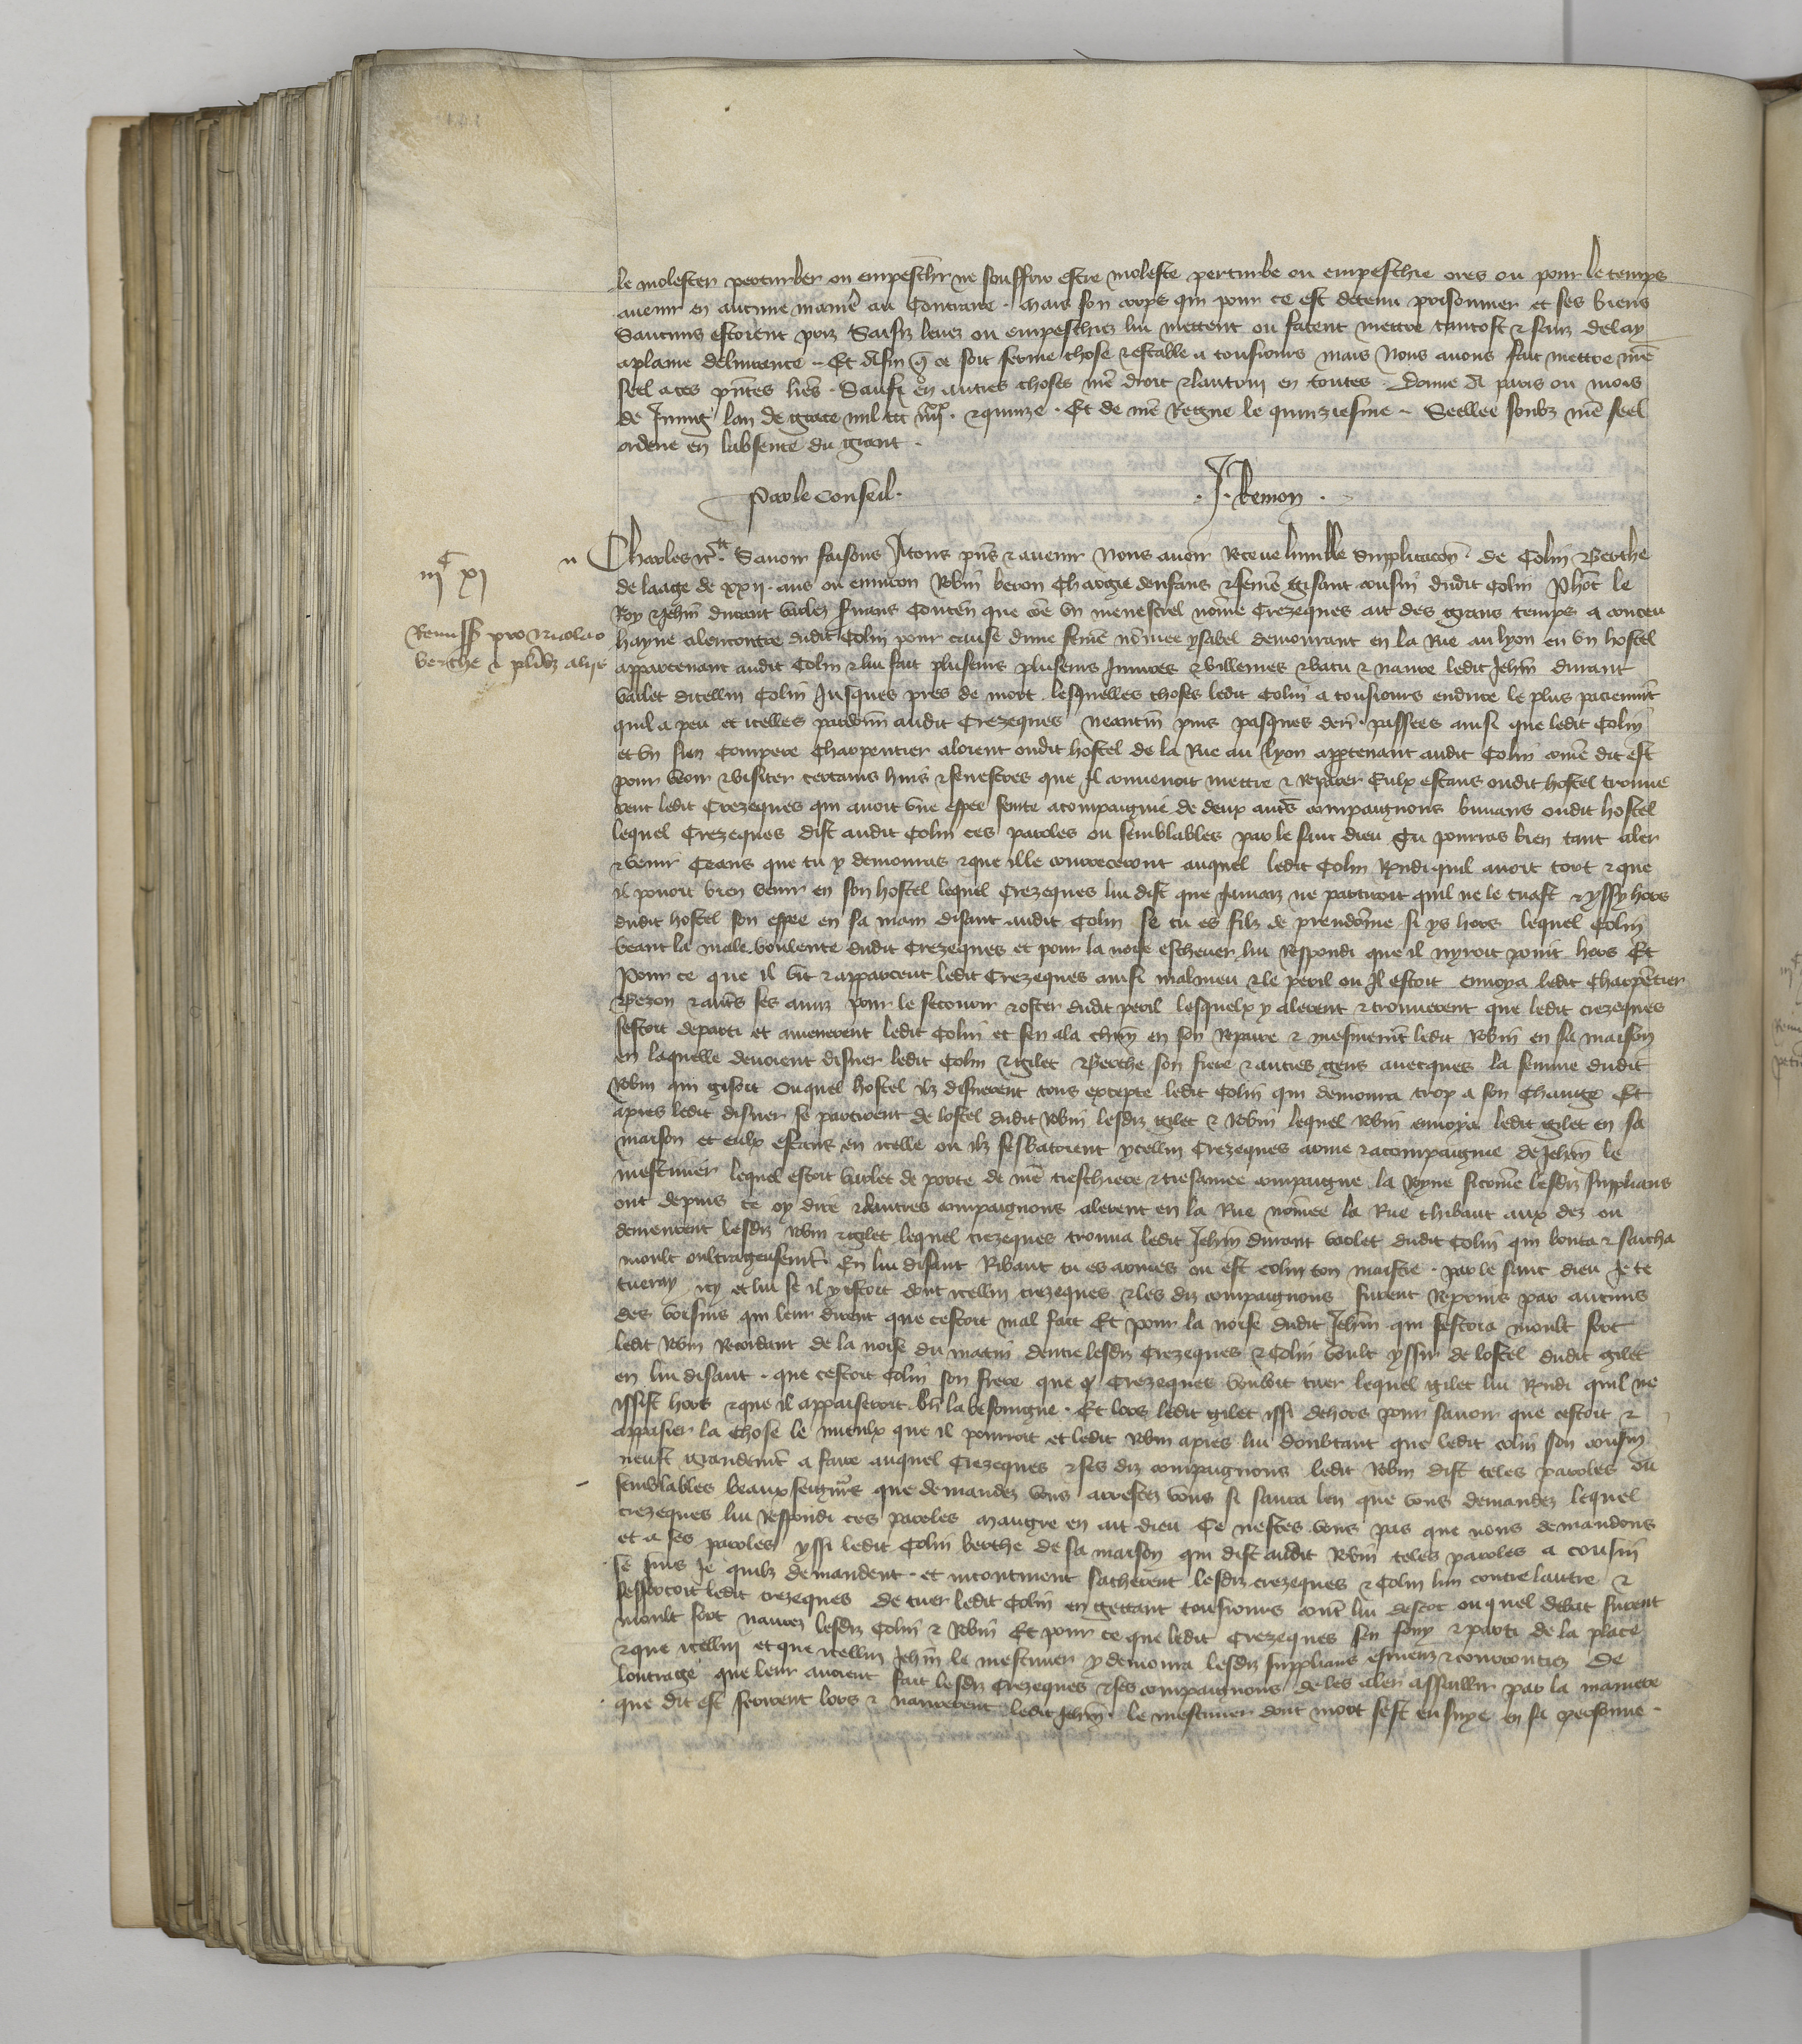 le molester perturber ou empescher ne souffrir estre moleste perturbe ou empeschie ores ou pour le temps
auenir en aucune manie au Contraire . Mais son corps qui pour ce est detenu prisonnier et ses biens
Saucuns estoient pour Saisiz leuez ou empeschiez lui mettent ou facent mettre tantost & sanz delay
a plaine deliurance . Et Afin q ce soit ferme chose & estable a tousiours mais Nous auons fait mettre nre
seel a ces pntes lres . Sauf en autres choses nre droit & lautruy en toutes . Donne A paris ou mois
de Juing lan de grace mil ccc iiiixx . & quinze . Et de nre Regne le quinziesme . Seellee soubz nre seel
ordene en labsence du grant .
Par le Conseil . J . Remon .
iiiC xi
Charles &c Sauoir faisons A tous pns & auenir Nous auoir Receue lumble Supplicacon de Colin Berthe
de laage de xxii . ans ou enuiron Robin beron Chargie denfans & feme gisant cousin dudit Colin Phot le
Roy & Jehin durant varlez Contenn que coe vn menestrel nome Crezeques ait des grans temps a conceu
Remiss pro Nicolao
hayne alencontre dudit Colin pour cause dune feme nomee ysabel demourant en la Rue au lyon en vn hostel
berthe & plibz aliis
appartenant audit Colin & lui fait plusieurs plusieurs Iniures & villenies & batu & naure ledit Jehin durant
varlet dicellui Colin Jusques pres de mort . lesquelles choses ledit Colin a tousiours endure le plus paciemmt
quil a peu et icelles pardonn audit Crezeques neantm puis pasques den . passees ainsi que ledit Colin
et vn sien Compere Charpentier aloient oudit hostel de la Rue au lyon appartenant audit Colin come dit est
pour veoir & visiter certains huis & fenestres que Il conuenoit mettre & reparer Eulx estans oudit hostel trouue
rent ledit Crezeques qui auoit vne espee sceinte acompaignie de deux autres compaignons buuans oudit hostel
lequel Crezeques dist audit Colin ces paroles ou semblables par le sanc dieu Tu pourras bien tant aler
& venir Ceans que tu y demourras & que ille auquel ledit Colin Rndi quil auoit tort & que
il pouoit bien venir en son hostel lequel Crezeques lui dist que Jamaiz ne partiroit quil ne le tuast & yssy hors
dudit hostel son espee en sa main disant audit Colin se tu es filz de preudome si ys hors lequel Colin
veant la male voulente dudit Crezeques et pour la noise escheuer lui Respondi que il nyroit point hors Et
Pour ce que il vit & apparceut ledit Crezeques ainsi malmeu & le peril ou Il estoit enuoya ledit Charpentier
& autres ses amiz pour le secourir & oster dudit peril lesquelx y alerent & trouuerent que ledit crezeques
sestoit departi et amenerent ledit Colin et sen ala chun en son repaire & mesmemt ledit Robin en sa maison
en laquelle deuoient disner ledit Colin & gilet Berthe son frere & autres gens auecques la femme dudit
Robin qui gisoit Ouquel hostel ilz disnerent tous excepte ledit Colin qui demoura trop a son Change Et
apres ledit disner se partirent de lostel dudit Robin lesdiz gilet & Robin lequel Robin enuoya ledit gilet en sa
maison et eulx estans en icelle ou ilz sesbatoient ycellui Crezeques arme & acompaignie de Jehin le
mestiuier lequel estoit varlet de porte de nre treschiere & tresamee compaigne la Royne sicome lesdiz supplians
ont depuis ce oy dire & dautres compaignons alerent en la Rue nomee la Rue thibaut aux dez ou
demeurent lesdiz Robin & gilet lequel crezeques trouua ledit Jehin durant varlet dudit Colin qui bouta & saicha
moult oultrageusemt En lui disant Ribaut tu es armes ou est colin ton maistre . par le sanc dieu Je te
tueray icy et lui se il y estoit dont icellui crezeques & les diz compaignons furent Repris par aucuns
des voisins qui leur dirent que cestoit mal fait Et pour la noise dudit Jehin qui sescria moult fort
ledit Robin Recordant de la noise du matin dentre lesdiz Crezeques & Colin voult yssir de lostel dudit gilet
en lui disant . que cestoit Colin son frere que Crezeques vouloit tuer lequel gilet lui Rndi quil ne
issist hors & que il appaiseroit bn la besoingne . Et lors ledit gilet issi dehors pour sauoir que cestoit &
appaisier la chose le mieulx que il pourroit et ledit Robin apres lui doubtant que ledit colin son cousin
neust grandemt a faire auquel Crezeques & ses diz compaignons ledit Robin dist teles paroles ou
semblables beaux seigneurs que demandez vous arrestez vous si saura len que vous demandez lequel
crezeques lui Respondi ces paroles maugre en ait dieu Ce nestes vous pas que nous demandons
et a ses paroles yssi ledit Colin berthe de sa maison qui dist audit Robin teles paroles a cousin
se suis Je quilz demandent . et incontinent sacherent lesdiz crezeques & Colin lun contre lautre &
sefforcoit ledit crezeques de tuer ledit Colin en gettant tousiours cont lui descoc ouquel debat furent
moult fort naurez lesdiz Colin & Robin Et pour ce que ledit Crezeques sen fuy & parti de la place
& que icellui et que icellui Jehin le mestiuier y demoura lesdiz supplians esmeuz & courrouciez de
loutrage que leur auoient fait lesdiz Crezeques & ses compaignons de les aler assaillir par la maniere
que dit est ferirent lors & naurerent ledit Jehin le mestiuier dont mort sest ensuye en sa personne .